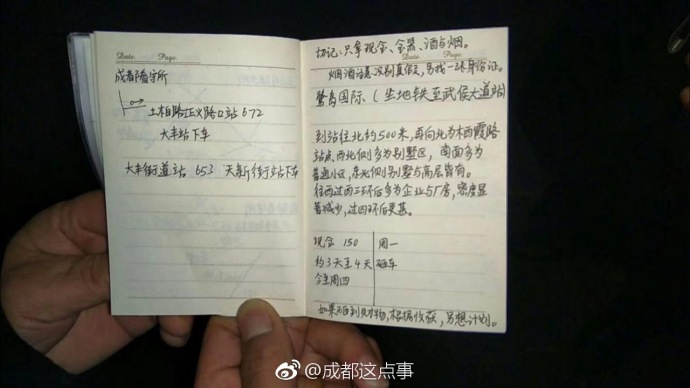 Date. Page.
成都看守所
土柏路正义路口站 672
大丰站下车
大丰街道站 653 天新街站下车
切记:只拿现金、金器、酒与烟。
Date. Page.
烟酒注意识别真假,另找一张身份证。
鹭岛国际、(坐地铁至武侯大道站)
到站往北约500米,再向北为木西霞路
站点,西北侧多为别墅区,南面多为
普通小区,东北侧别墅与高层皆有。
往西过西三环后多为企业与厂房,密度显
著减少,过四环后更甚。
现金 150 周一
约3天至4天 砸车
今至周四
如果有到财物,根据收获,另想计划。
@成都这点事